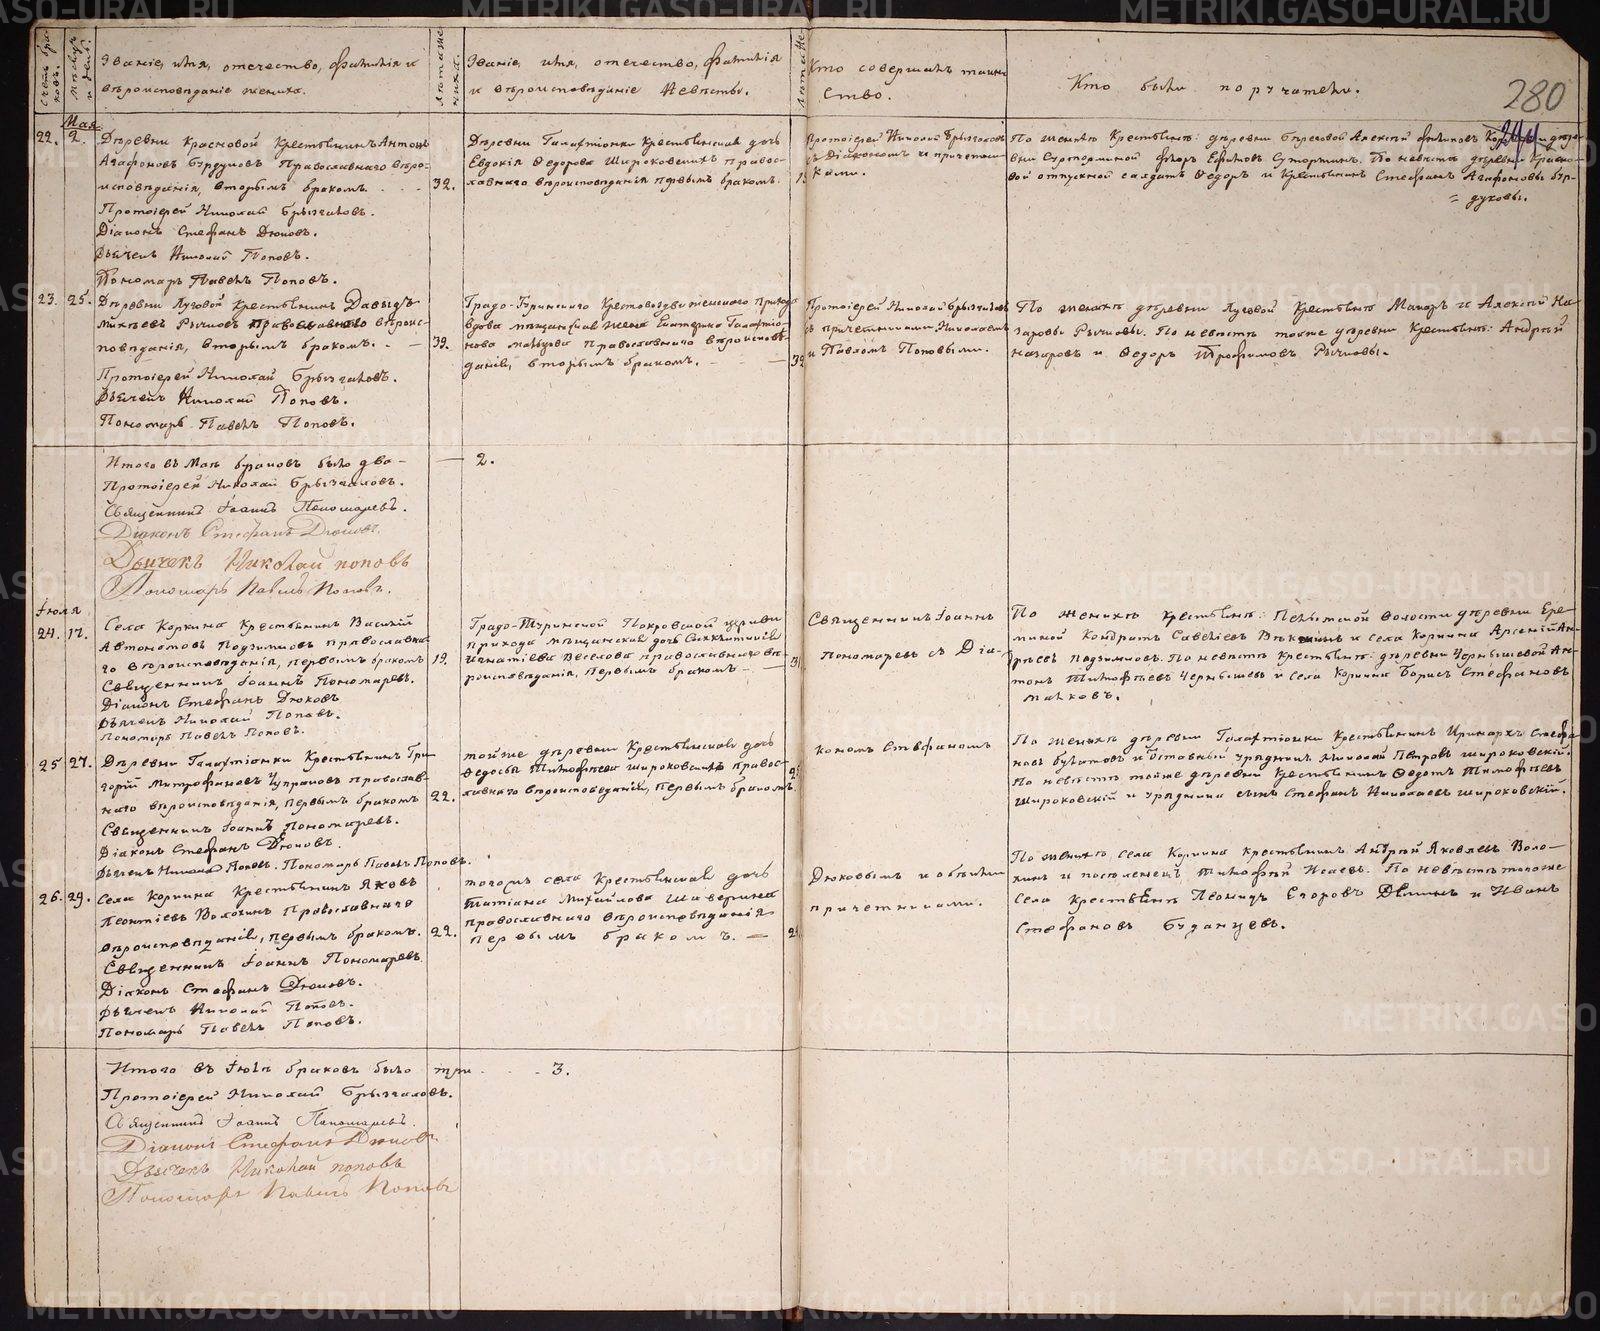 счетъ браковъ.
мѣсяцъ и день.
Званіе, имя, отечество, фамилія и
вѣроисповѣданіе жениха.
лѣта жениха.
Званіе, имя, отечество, фамилія
и вѣроисповѣданіе невѣсты.
Кто совершалъ таин-
ство.
Кто были поручатели.
280
Мая
22. 2.
Деревни Красновой крестьянинъ Антонъ
Агафоновъ Бурдуковъ православнаго вѣро-
исповѣданія, вторымъ бракомъ.
32.
Протоіерей Николай Брызгаловъ.
Діаконъ Стефанъ Дюковъ.
Дьячекъ Николай Поповъ.
Пономарь Павелъ Поповъ.
Деревни Галактіонки крестьянская дочь
Евдокія Ѳедорова Широковскихъ правос-
лавнаго вѣроисповѣданія первымъ бракомъ.
Протоіерей Николай Брызгаловъ
съ Діакономъ и причетни-
ками.
По женихѣ крестьяне: деревни Береговой Алексѣй
вой отпускной салдатъ Ѳедоръ и крестьянинъ Стефанъ Агафоновы Бур-
= дуковы.
23. 25.
Деревни Луговой крестьянинъ Давыдъ
Михѣевъ Рычковъ православнаго вѣроис-
повѣданія, вторымъ бракомъ. —
39.
Протоіерей Николай Брызгаловъ.
Дьячекъ Николай Поповъ.
Пономарь Павелъ Поповъ.
Градо-Туринскаго Крестовоздвиженскаго прихода
вдова мѣщанская жена Екатерина Галактіо-
нова православнаго вѣроисповѣ-
данія, вторымъ бракомъ. —
39
Протоіерей Николай Брызгаловъ
съ причетниками Николаемъ
и Павломъ Поповыми.
По женихѣ деревни Луговой крестьяне Макаръ и Алексѣй На-
заровы Рычковы. По невѣстѣ тоже деревни крестьяне: Андрей
Назаровъ и Ѳедоръ Трофимовъ Рычковы.
Итого въ Маѣ браковъ было два —
— 2.
Протоіерей Николай Брызгаловъ.
Священникъ Іоаннъ Пономаревъ.
Діаконъ Стефанъ Дюковъ.
Дьячекъ Николай Поповъ
Пономарь Павелъ Поповъ.
Іюля
24. 17.
Села Коркина крестьянинъ Василій
Автономовъ Подзимковъ православна-
го вѣроисповѣданія, первымъ бракомъ
19.
Священникъ Іоаннъ Пономаревъ.
Діаконъ Стефанъ Дюковъ
Дьячекъ Николай Поповъ.
Пономарь Павелъ Поповъ.
Градо-Туринской Покровской церкви
прихода мѣщанская дочь
Игнатіева Веселова православнаго вѣ-
роисповѣданія, первымъ бракомъ —
Священникъ Іоаннъ
Пономаревъ съ Діа-
По женихѣ крестьяне: волости деревни Ере-
миной Кондратъ Савельевъ и села Коркина Арсеній Ан-
дреевъ Подзимковъ. По невѣстѣ крестьяне: деревни Чернышевой Ан-
тонъ Тимофѣевъ Чернышевъ и села Коркина Борисъ Стефановъ
25 27.
Деревни Галактіонки крестьянинъ Гри-
горій Митрофановъ Чупраковъ православ-
наго вѣроисповѣданія, первымъ бракомъ
22.
Священникъ Іоаннъ Пономаревъ.
Діаконъ Стефанъ Дюковъ.
Дьячекъ Николай Поповъ. Пономарь Павелъ Поповъ.
тойже деревни крестьянская дочь
Ѳедосья Тимофѣева Широковскихъ правос-
лавнаго вѣроисповѣданія, первымъ бракомъ.
кономъ Стефаномъ
По женихѣ деревни Галактіонки крестьянинъ Иринархъ Стефа-
новъ и отставный урядникъ Николай Петровъ Широковскій.
По невѣстѣ тойже деревни крестьянинъ Ѳедотъ Тимофѣевъ
Широковскій и урядника сынъ Стефанъ Николаевъ Широковскій.
26. 29.
Села Коркина крестьянинъ Яковъ
Леонтіевъ Волохинъ православнаго
вѣроисповѣданія, первымъ бракомъ.
22.
Священникъ Іоаннъ Пономаревъ.
Діаконъ Стефанъ Дюковъ.
Дьячекъ Николай Поповъ.
Пономарь Павелъ Поповъ.
тогожъ села крестьянская дочь
Татіана Михайлова Шаверина
православнаго вѣроисповѣданія
первымъ бракомъ. —
Дюковымъ и обоими
причетниками.
По женихѣ села Коркина крестьянинъ Андрей Яковлевъ Воло-
хинъ и поселенецъ Тимофей Исаевъ. По невѣстѣ тогоже
села крестьяне Леонидъ Егоровъ Деминъ и Иванъ
Стефановъ Буданцевъ.
Итого въ Іюлѣ браковъ было три - - - 3.
Протоіерей Николай Брызгаловъ.
Священникъ Іоаннъ Пономаревъ.
Діаконъ Стефанъ Дюковъ
Дьячекъ Николай Поповъ
Пономарь Павелъ Поповъ
METRIKI.GASO-URAL.RU